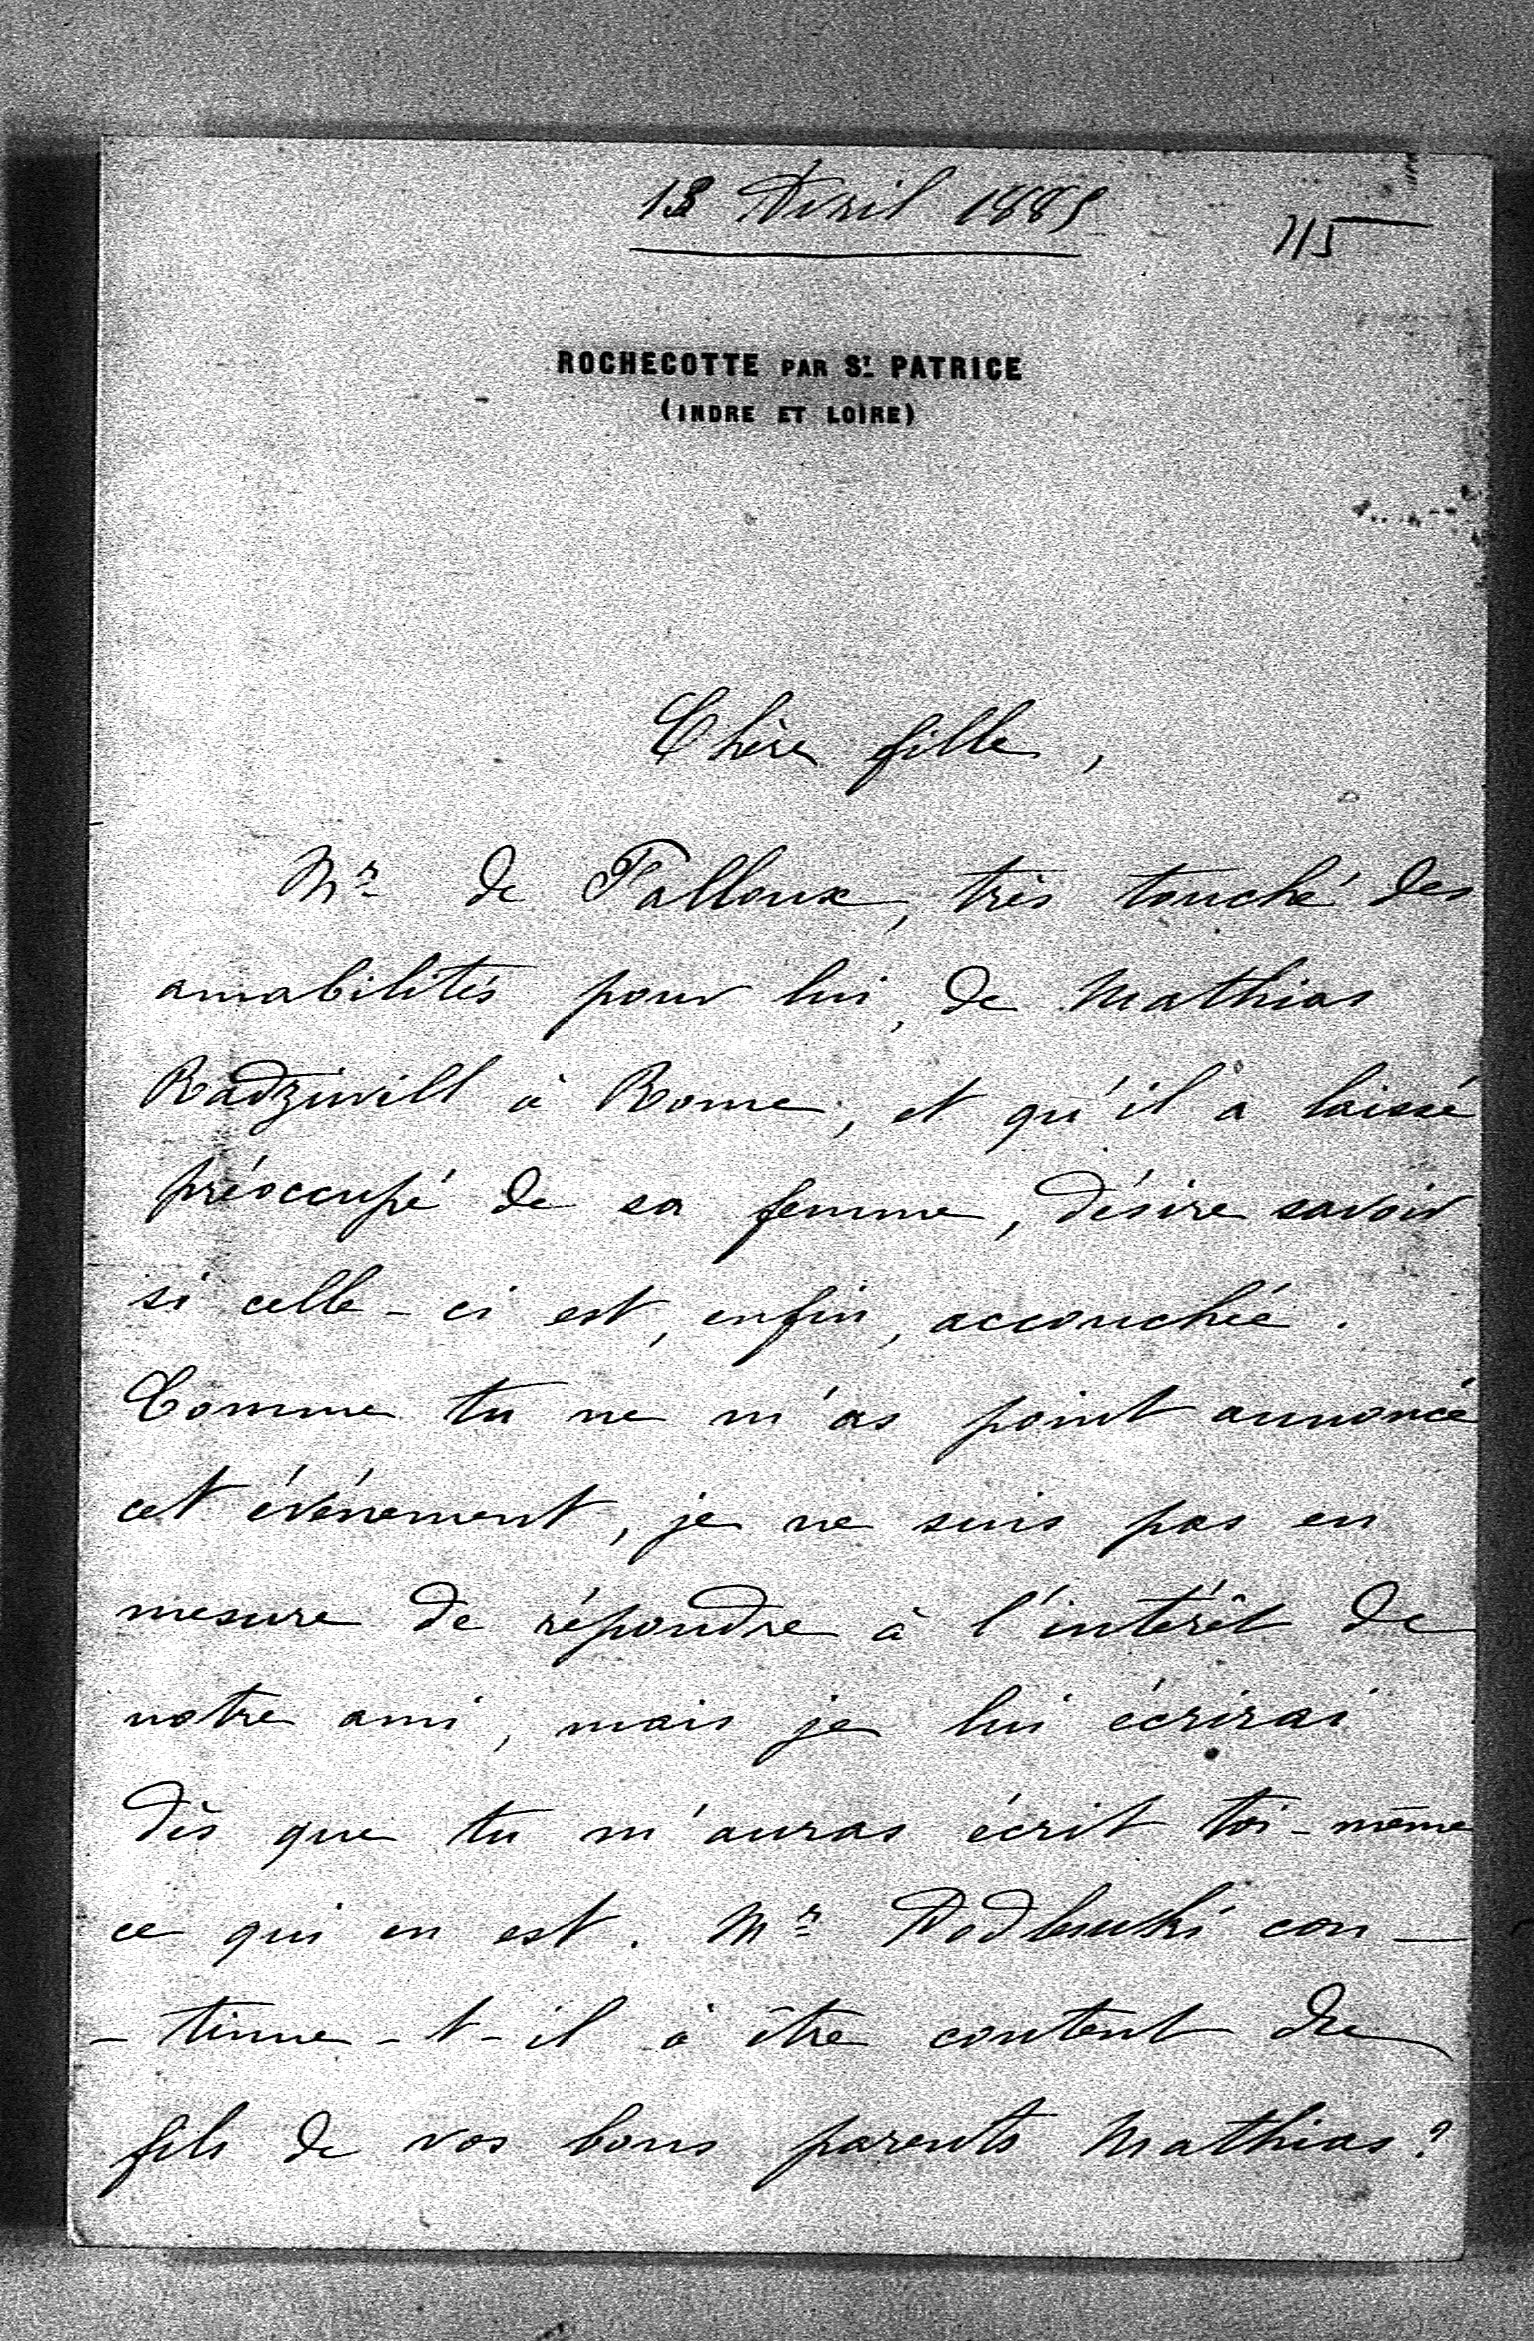 13 Avril 1885
115
ROCHECOTTE PAR ST PATRICE
(INDRE ET LOIRE)
Chère fille,
Mr de Falloux, très touché des
amabilités pour lui, de Mathias
Radziwill à Rome, et qu'il a laissé
préoccupé de sa femme, désire savoir
si celle-ci est, enfin, accouchée.
Comme tu ne m'as point annoncé
cet événement, je ne suis pas en
mesure de répondre à l'intérêt de
notre ami, mais je lui écrirai
dès que tu m'auras écrit toi-même
ce qui en est. Mr con-
-tinue-t-il à être content du
fils de vos bons parents Mathias?